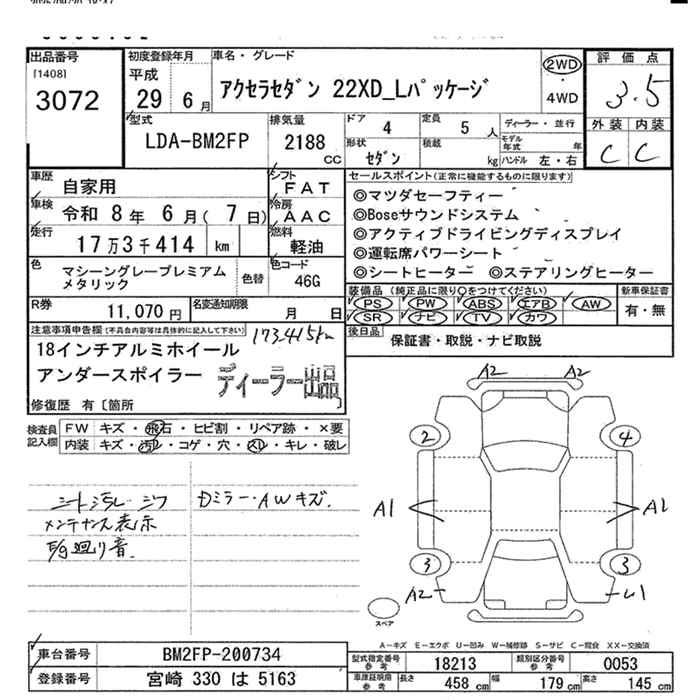 出品番号 初度登録年月 車名・グレード 評価点
[1408] 平成 アクセラセダン 22XD_Lパッケージ 2WD・4WD 3.5
3072 29 6月
型式 排気量 ドア 4 定員 5人 ディーラー・並行 外装 内装
LDA-BM2FP 2188 CC 形状 セダン 積載 kg モデル年式 年 ハンドル 左・右 C C
車歴 自家用 シフト FAT セールスポイント(正常に機能するものに限ります)
車検 令和 8年 6月( 7日) 冷房 AAC ◎マツダセーフティー
◎Boseサウンドシステム
走行 17万3千414 km 燃料 軽油 ◎アクティブドライビングディスプレイ
◎運転席パワーシート
色 マシーングレープレミアムメタリック 色替 色コード 46G ◎シートヒーター ◎ステアリングヒーター
装備品(純正品に限り○をつけてください) 新車保証書
R券 11,070 円 名変通知期限 月 日 PS PW ABS エアB AW 有・無
SR ナビ TV カワ
注意事項申告欄(不具合内容等は具体的に記入して下さい) 173,415km 後日品 保証書・取説・ナビ取説
18インチアルミホイール
アンダースポイラー ディーラー出品
修復歴 有〔箇所
検査員記入欄 FW キズ・飛石・ヒビ割・リペア跡・×要
内装 キズ・汚レ・コゲ・穴・スレ・キレ・破レ
シート汚レ シワ Dミラー・AWキズ.
メンテナンス表示
E/g廻り音
A2 A2
2 4
A1 A1
3 3
A2
スペア
A-キズ E-エクボ U-凹み W-補修跡 S-サビ C-腐食 XX-交換済
車台番号 BM2FP-200734 型式指定番号 参考 18213 類別区分番号 参考 0053
登録番号 宮崎 330 は 5163 車庫証明用 参考 長さ 458 cm 幅 179 cm 高さ 145 cm